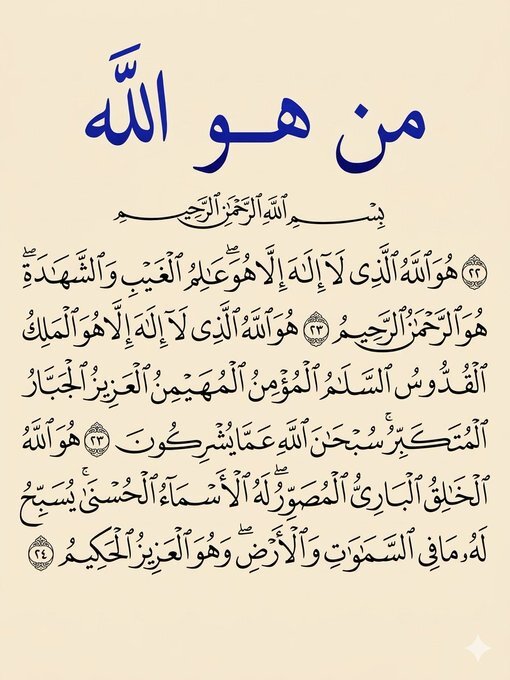 من هو الله
بِسْمِ ٱللَّهِ ٱلرَّحْمَٰنِ ٱلرَّحِيمِ
﴿٢٢﴾ هُوَ ٱللَّهُ ٱلَّذِى لَآ إِلَٰهَ إِلَّا هُوَ ۖ عَٰلِمُ ٱلْغَيْبِ وَٱلشَّهَٰدَةِ ۖ
هُوَ ٱلرَّحْمَٰنُ ٱلرَّحِيمُ ﴿٢٣﴾ هُوَ ٱللَّهُ ٱلَّذِى لَآ إِلَٰهَ إِلَّا هُوَ ٱلْمَلِكُ
ٱلْقُدُّوسُ ٱلسَّلَٰمُ ٱلْمُؤْمِنُ ٱلْمُهَيْمِنُ ٱلْعَزِيزُ ٱلْجَبَّارُ
ٱلْمُتَكَبِّرُ ۚ سُبْحَٰنَ ٱللَّهِ عَمَّا يُشْرِكُونَ ﴿٢٣﴾ هُوَ ٱللَّهُ
ٱلْخَٰلِقُ ٱلْبَارِئُ ٱلْمُصَوِّرُ ۖ لَهُ ٱلْأَسْمَآءُ ٱلْحُسْنَىٰ ۚ يُسَبِّحُ
لَهُۥ مَا فِى ٱلسَّمَٰوَٰتِ وَٱلْأَرْضِ ۖ وَهُوَ ٱلْعَزِيزُ ٱلْحَكِيمُ ﴿٢٤﴾